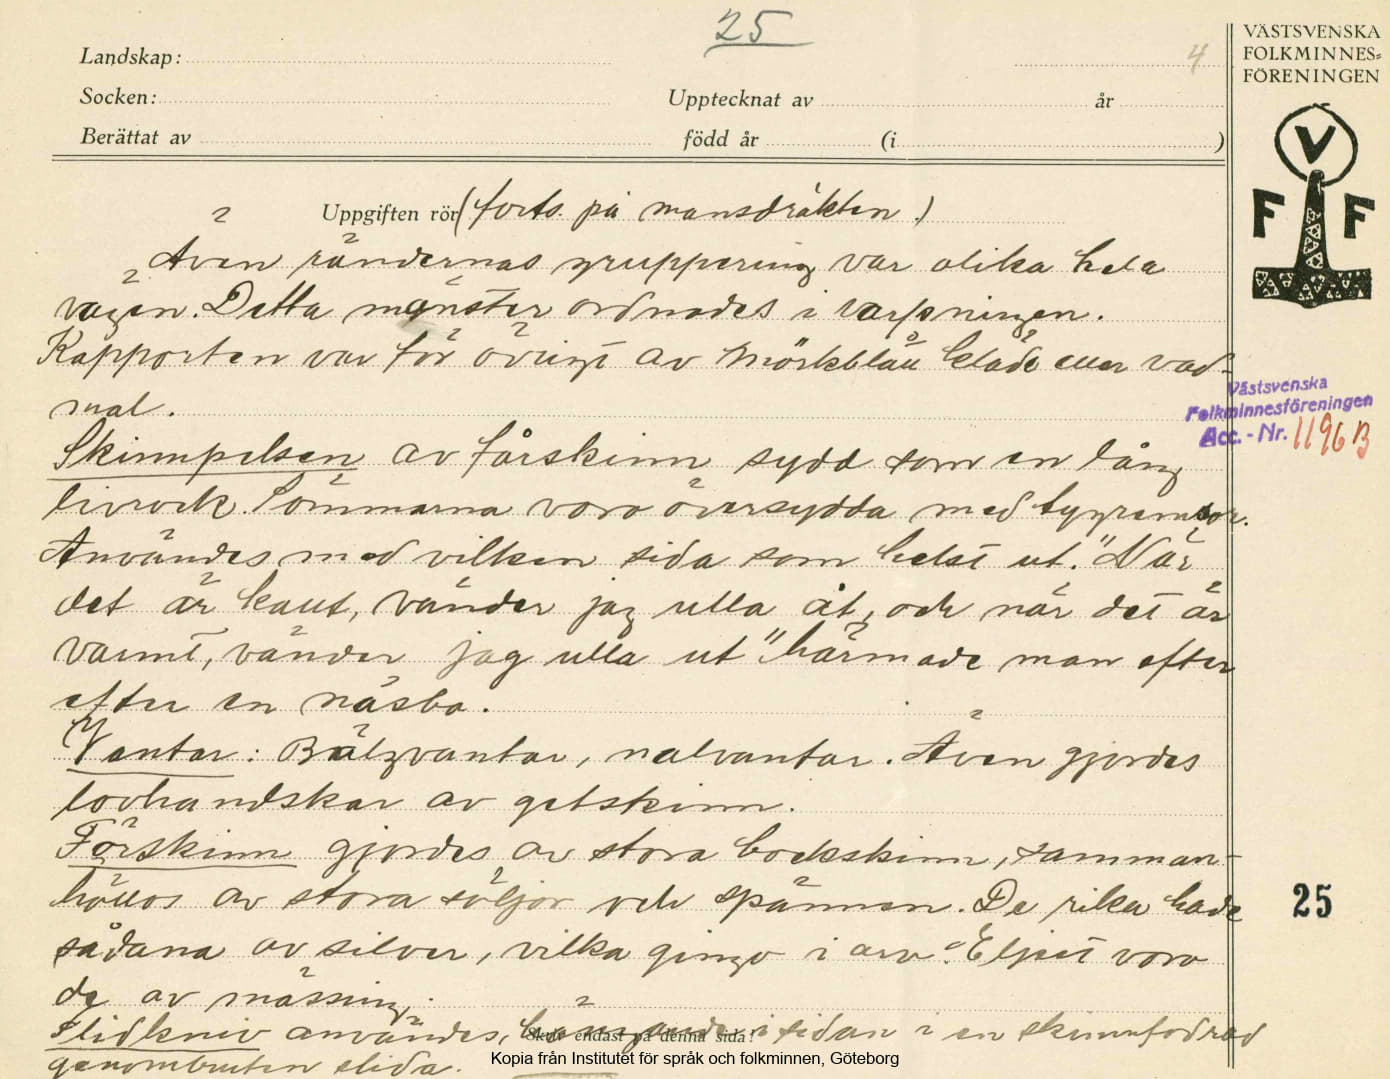 25
4
Landskap:
Socken:
Upptecknat av år
Berättat av född år (i )
VÄSTSVENSKA
FOLKMINNES-
FÖRENINGEN
V
F F
Uppgiften rör (forts. på mansdräkten.)
Även rändernas gruppering var olika hela
vägen. Detta mönster ordnades i varpningen.
Kapporten var för övrigt av mörkblåu kläde eller vad-
mal.
Skinnpelsen av fårskinn sydd som en lång
livrock. Sömmarna voro översydda med tygremsor.
Användes med vilken sida som helst ut. "När
det är kallt, vänder jag ulla åt, och när det är
varmt, vänder jag ulla ut" härmade man efter
efter en näsbo.
Vantar: Bälgvantar, nalvantar. Även gjordes
lovhandskar av getskinn.
Förskinn gjordes av stora bockskinn, samman-
höllos av stora söljor och spännen. De rika hade
sådana av silver, vilka gingo i arv. Eljest voro
de av mässing.
Slidkniv användes, hängande i sidan i en skinnfodrad
genombruten slida.
Skriv endast på denna sida!
Västsvenska
Folkminnesföreningen
Acc. - Nr. 1196 B
25
Kopia från Institutet för språk och folkminnen, Göteborg